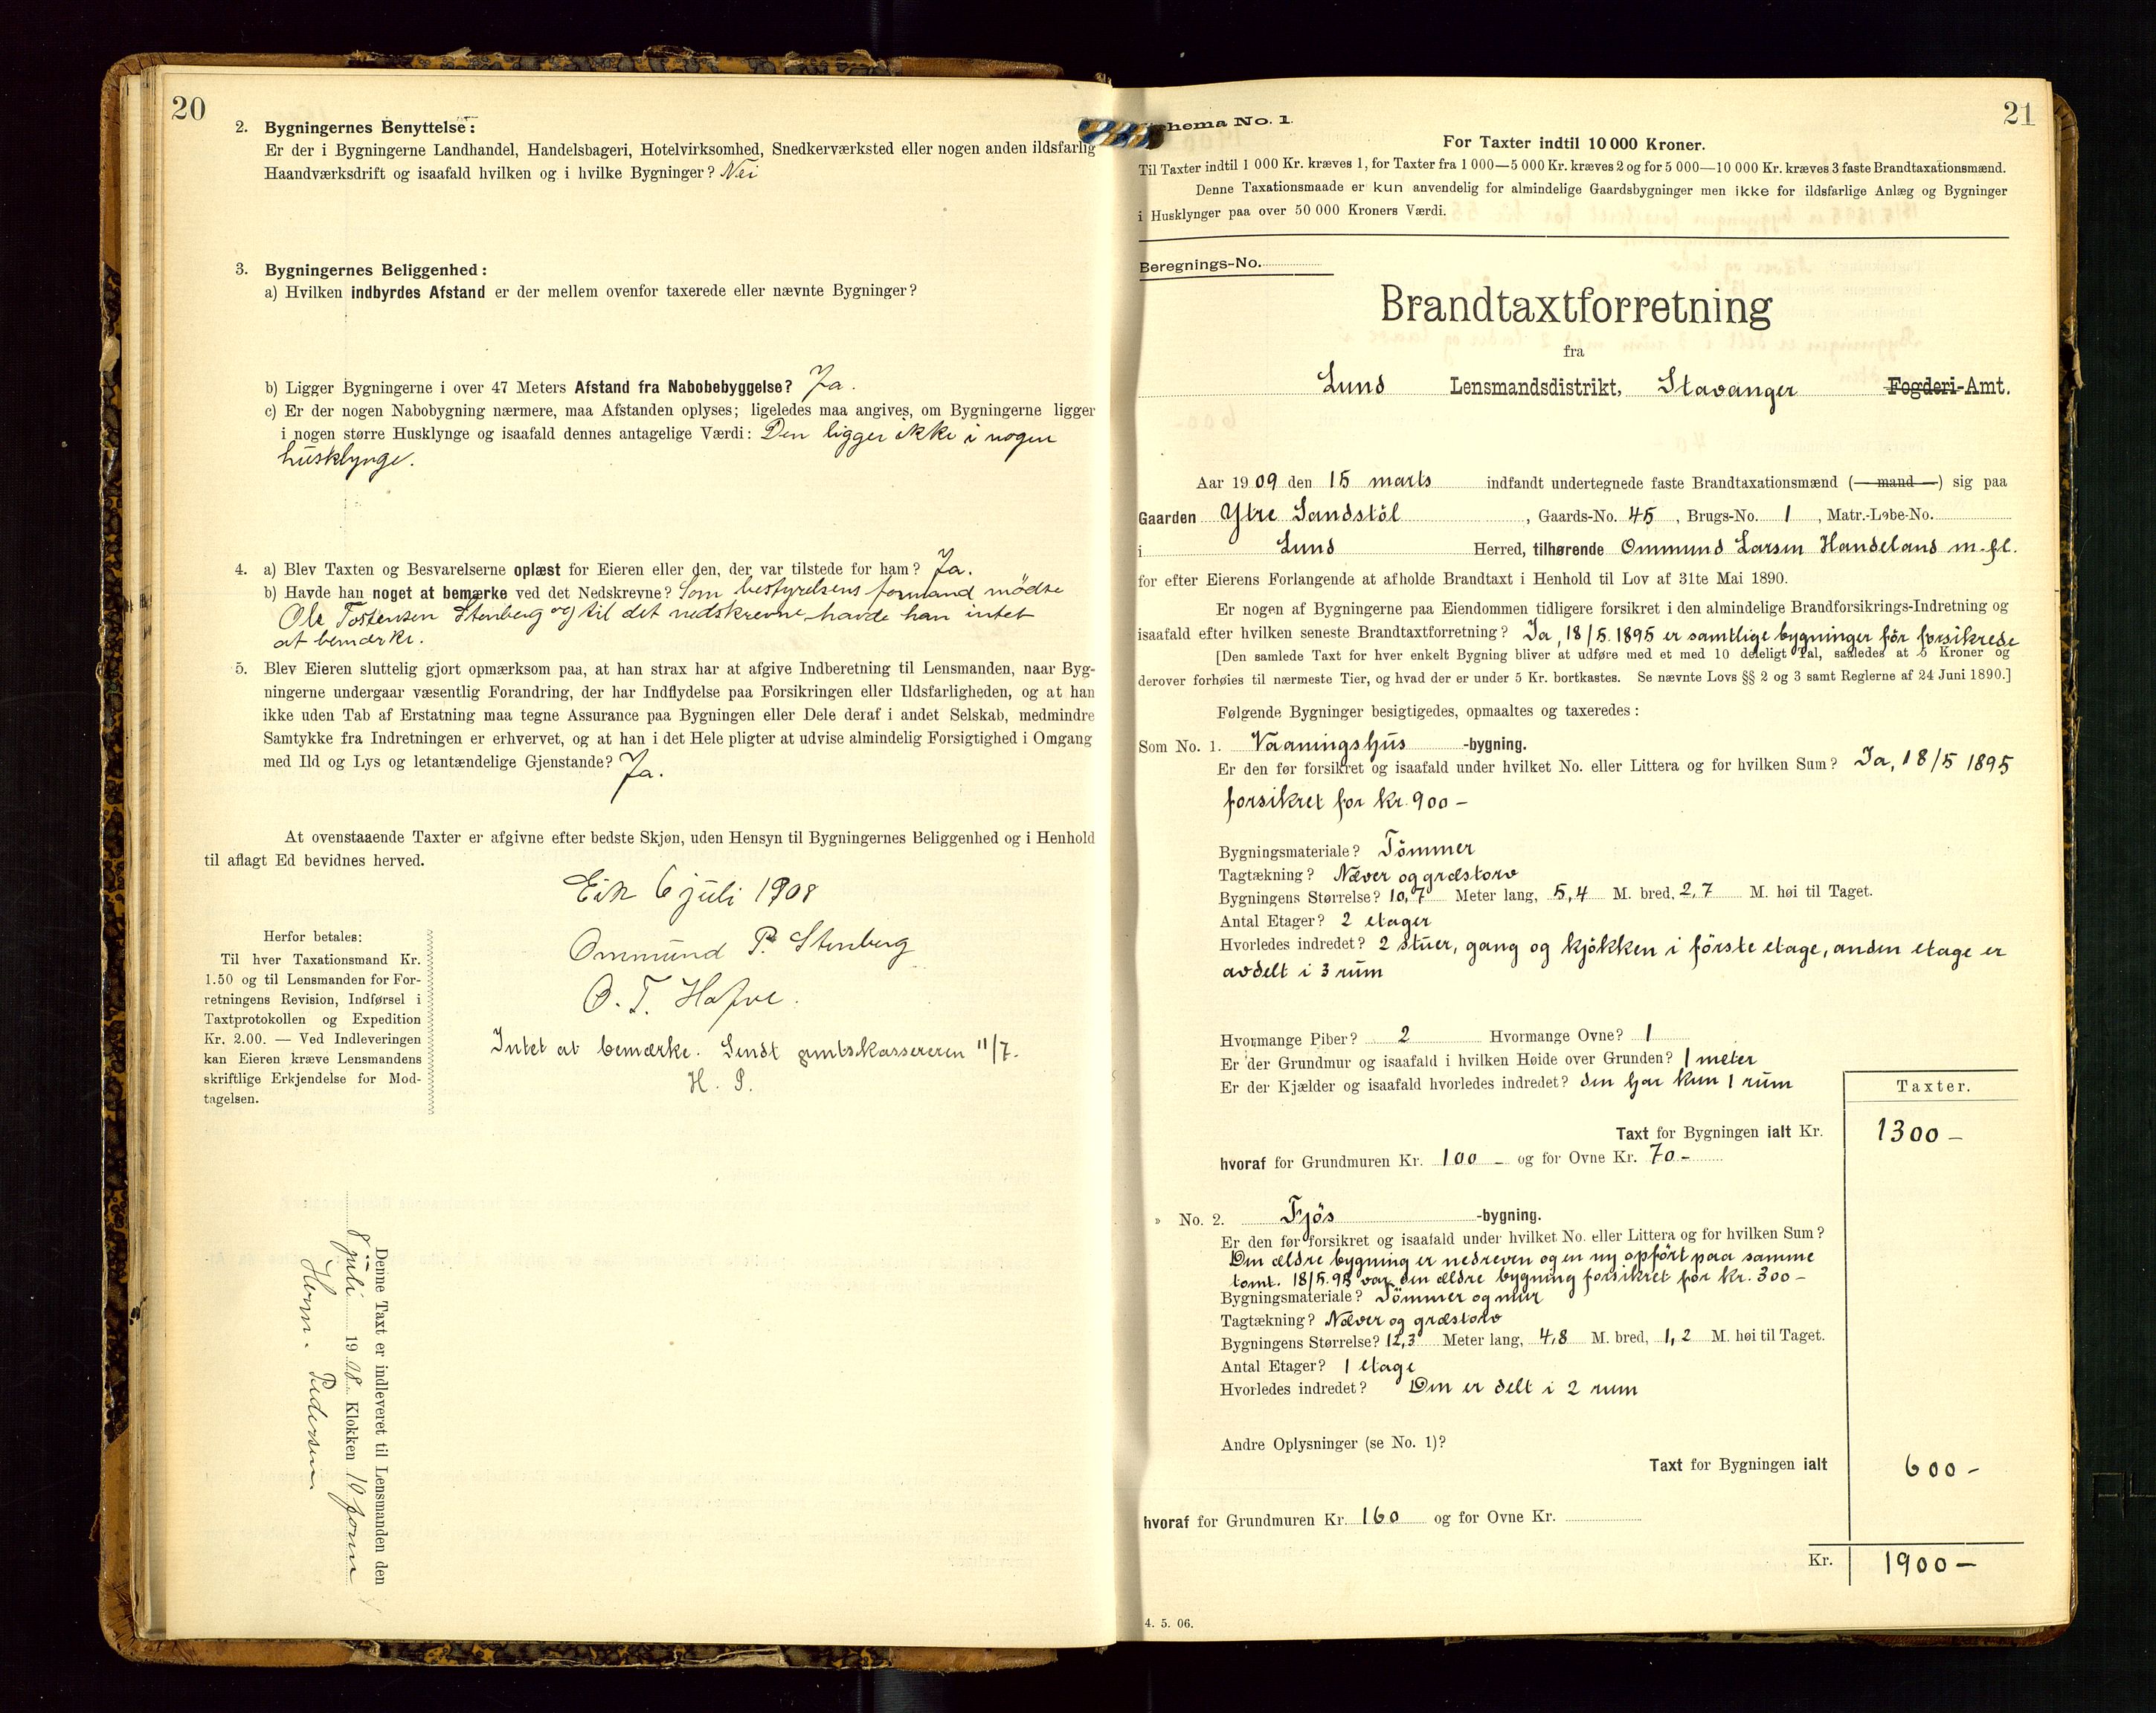 20
2. Bygningernes Benyttelse:
Er der i Bygningerne Landhandel, Handelsbageri, Hotelvirksomhed, Snedkerværksted eller nogen anden ildsfarlig
Haandværksdrift og isaafald hvilken og i hvilke Bygninger? Nei
3. Bygningernes Beliggenhed:
a) Hvilken indbyrdes Afstand er der mellem ovenfor taxerede eller nævnte Bygninger?
b) Ligger Bygningerne i over 47 Meters Afstand fra Nabobebyggelse? Ja.
c) Er der nogen Nabobygning nærmere, maa Afstanden oplyses; ligeledes maa angives, om Bygningerne ligger
i nogen større Husklynge og isaafald dennes antagelige Værdi: Den ligger ikke i nogen
husklynge.
4. a) Blev Taxten og Besvarelserne oplæst for Eieren eller den, der var tilstede for ham? Ja.
b) Havde han noget at bemærke ved det Nedskrevne? Som bestyrelsens formand mødte
Ole Tostensen Stenberg og til det nedskrevne havde han intet
at bemærke.
5. Blev Eieren sluttelig gjort opmærksom paa, at han strax har at afgive Indberetning til Lensmanden, naar Byg-
ningerne undergaar væsentlig Forandring, der har Indflydelse paa Forsikringen eller Ildsfarligheden, og at han
ikke uden Tab af Erstatning maa tegne Assurance paa Bygningen eller Dele deraf i andet Selskab, medmindre
Samtykke fra Indretningen er erhvervet, og at han i det Hele pligter at udvise almindelig Forsigtighed i Omgang
med Ild og Lys og letantændelige Gjenstande? Ja.
At ovenstaaende Taxter er afgivne efter bedste Skjøn, uden Hensyn til Bygningernes Beliggenhed og i Henhold
til aflagt Ed bevidnes herved.
Eik 6 juli 1908
Ommund P. Stenberg
O. T. Hafve.
Intet at bemærke. Sendt amtskassereren 11/7.
H. P.
Herfor betales:
Til hver Taxationsmand Kr.
1.50 og til Lensmanden for For-
retningens Revision, Indførsel i
Taxtprotokollen og Expedition
Kr. 2.00. — Ved Indleveringen
kan Eieren kræve Lensmandens
skriftlige Erkjendelse for Mod-
tagelsen.
Denne Taxt er indleveret til Lensmanden den
8 juli 1908. Klokken 10 form
Herm. Pedersen
21
Schema No. 1.
For Taxter indtil 10 000 Kroner.
Til Taxter indtil 1 000 Kr. kræves 1, for Taxter fra 1 000—5 000 Kr. kræves 2 og for 5 000—10 000 Kr. kræves 3 faste Brandtaxationsmænd.
Denne Taxationsmaade er kun anvendelig for almindelige Gaardsbygninger men ikke for ildsfarlige Anlæg og Bygninger
i Husklynger paa over 50 000 Kroners Værdi.
Beregnings-No.
Brandtaxtforretning
fra
Lund Lensmandsdistrikt, Stavanger Fogderi-Amt.
Aar 1909 den 15 marts indfandt undertegnede faste Brandtaxationsmænd (—mand—) sig paa
Gaarden Ytre Sandstöl, Gaards-No. 45, Brugs-No. 1, Matr.-Løbe-No.
i Lund Herred, tilhørende Ommund Larsen Handeland m. fl.
for efter Eierens Forlangende at afholde Brandtaxt i Henhold til Lov af 31te Mai 1890.
Er nogen af Bygningerne paa Eiendommen tidligere forsikret i den almindelige Brandforsikrings-Indretning og
isaafald efter hvilken seneste Brandtaxtforretning? Ja, 18/5. 1895 er samtlige bygninger før forsikrede
[Den samlede Taxt for hver enkelt Bygning bliver at udføre med et med 10 deleligt Tal, saaledes at 5 Kroner og
derover forhøies til nærmeste Tier, og hvad der er under 5 Kr. bortkastes. Se nævnte Lovs §§ 2 og 3 samt Reglerne af 24 Juni 1890.]
Følgende Bygninger besigtigedes, opmaaltes og taxeredes:
Som No. 1. Vaaningshus-bygning.
Er den før forsikret og isaafald under hvilket No. eller Littera og for hvilken Sum? Ja, 18/5 1895
forsikret for kr. 900 -
Bygningsmateriale? Tömmer
Tagtækning? Næver og græstorv
Bygningens Størrelse? 10,7 Meter lang, 5,4 M. bred, 2,7 M. høi til Taget.
Antal Etager? 2 etager
Hvorledes indredet? 2 stuer, gang og kjökken i förste etage, anden etage er
avdelt i 3 rum
Hvormange Piber? 2 Hvormange Ovne? 1
Er der Grundmur og isaafald i hvilken Høide over Grunden? 1 meter
Er der Kjælder og isaafald hvorledes indredet? den har kun 1 rum
Taxter.
Taxt for Bygningen ialt Kr. 1300 -
hvoraf for Grundmuren Kr. 100 - og for Ovne Kr. 70 -
» No. 2. Fjös-bygning.
Er den før forsikret og isaafald under hvilket No. eller Littera og for hvilken Sum?
Den ældre bygning er nedreven og en ny opført paa samme
tomt. 18/5. 95 var den ældre bygning forsikret for kr. 300 -
Bygningsmateriale? Tömmer og mur
Tagtækning? Næver og græstorv
Bygningens Størrelse? 12,3 Meter lang, 4,8 M. bred, 1,2 M. høi til Taget.
Antal Etager? 1 etage
Hvorledes indredet? Den er delt i 2 rum
Andre Oplysninger (se No. 1)?
Taxt for Bygningen ialt 600 -
hvoraf for Grundmuren Kr. 160 og for Ovne Kr.
Kr. 1900 -
4. 5. 06.